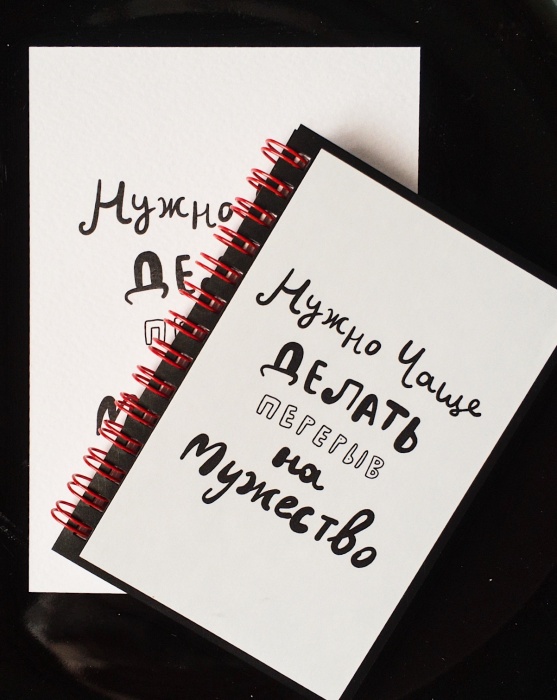 Нужно
ДЕ
Нужно Чаще
ДЕЛАТЬ
ПЕРЕРЫВ
на
Мужество